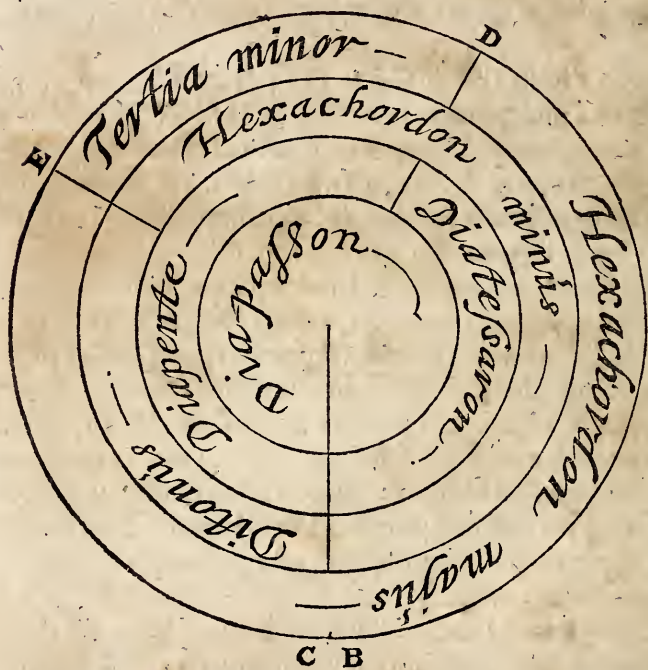 D
E
Tertia minor
Hexachordon majus
Hexachordon minus
Ditonus
Diapente
Diatessaron
Diapasson
C B